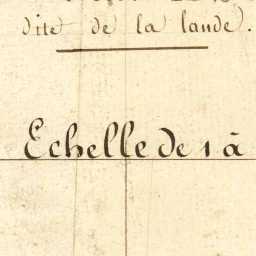 dite de la lande).
Echelle de 1 à